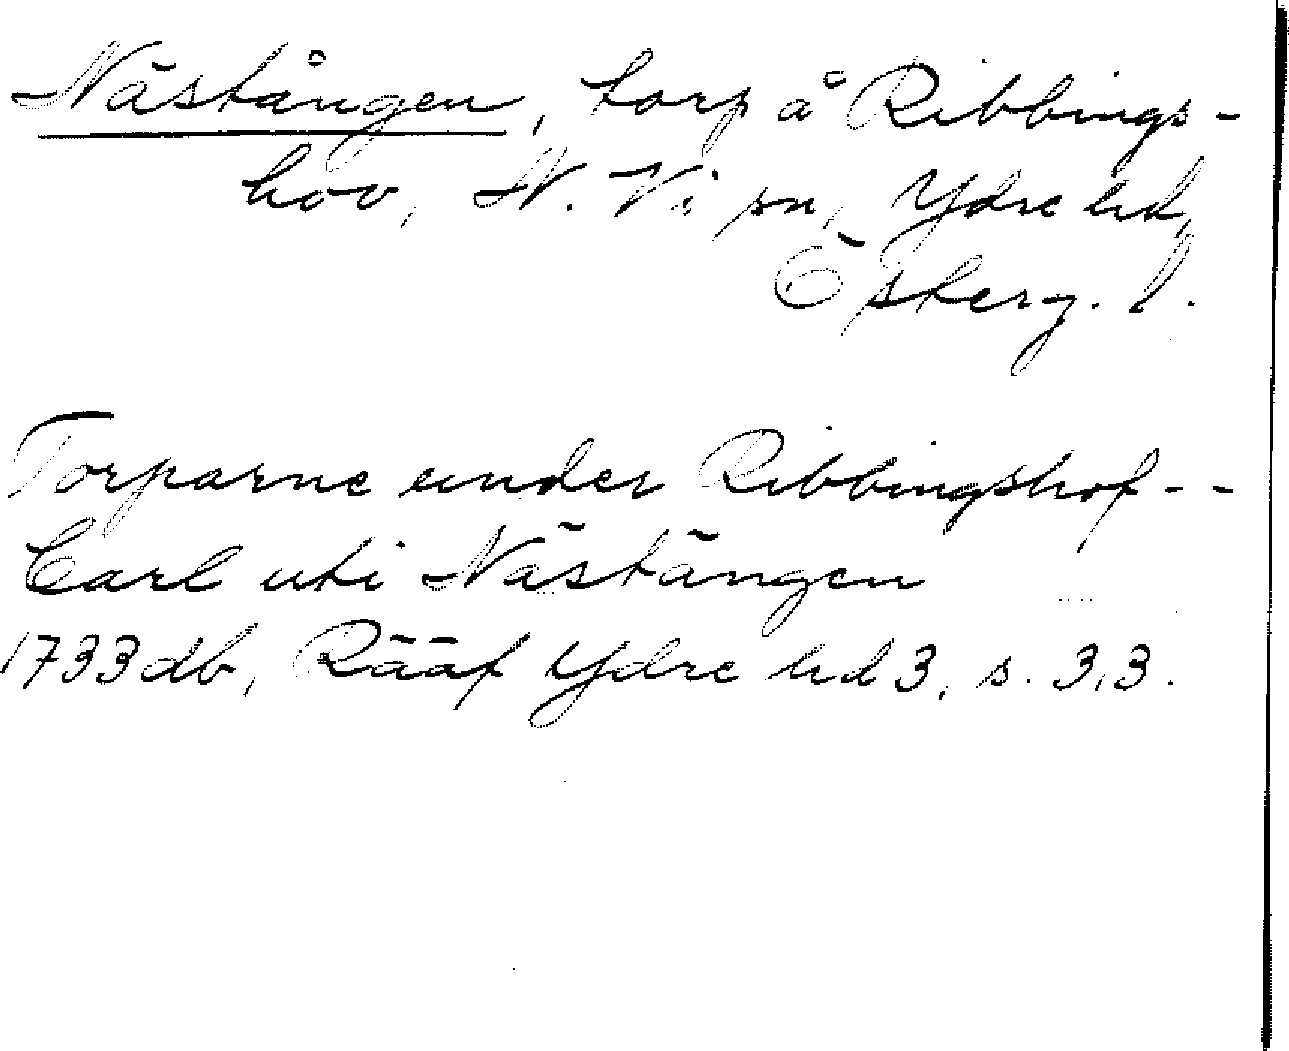 Nästången, torp å Ribbings-
hov, N. Vi sn, Ydre hd,
Österg. l.
Torparne under Ribbingshof--
Carl uti Nästängen
1733 db, Rääf Ydre hd 3, s. 3,3.